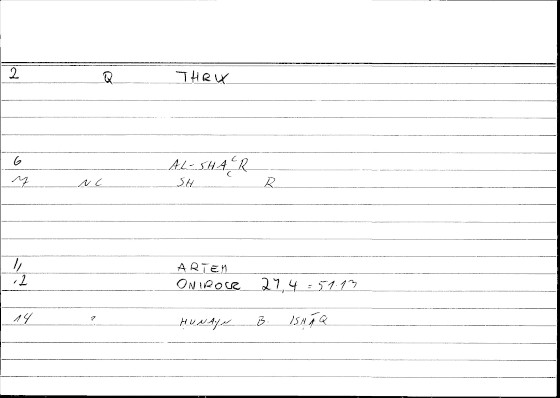 2 Q THRIX
6 AL-SHAʿR
M NC SH ʿ R
1, ARTEM
.2 ONIROCR 27,4 = 51.13
14 " ḤUNAYN B. ISḤĀQ